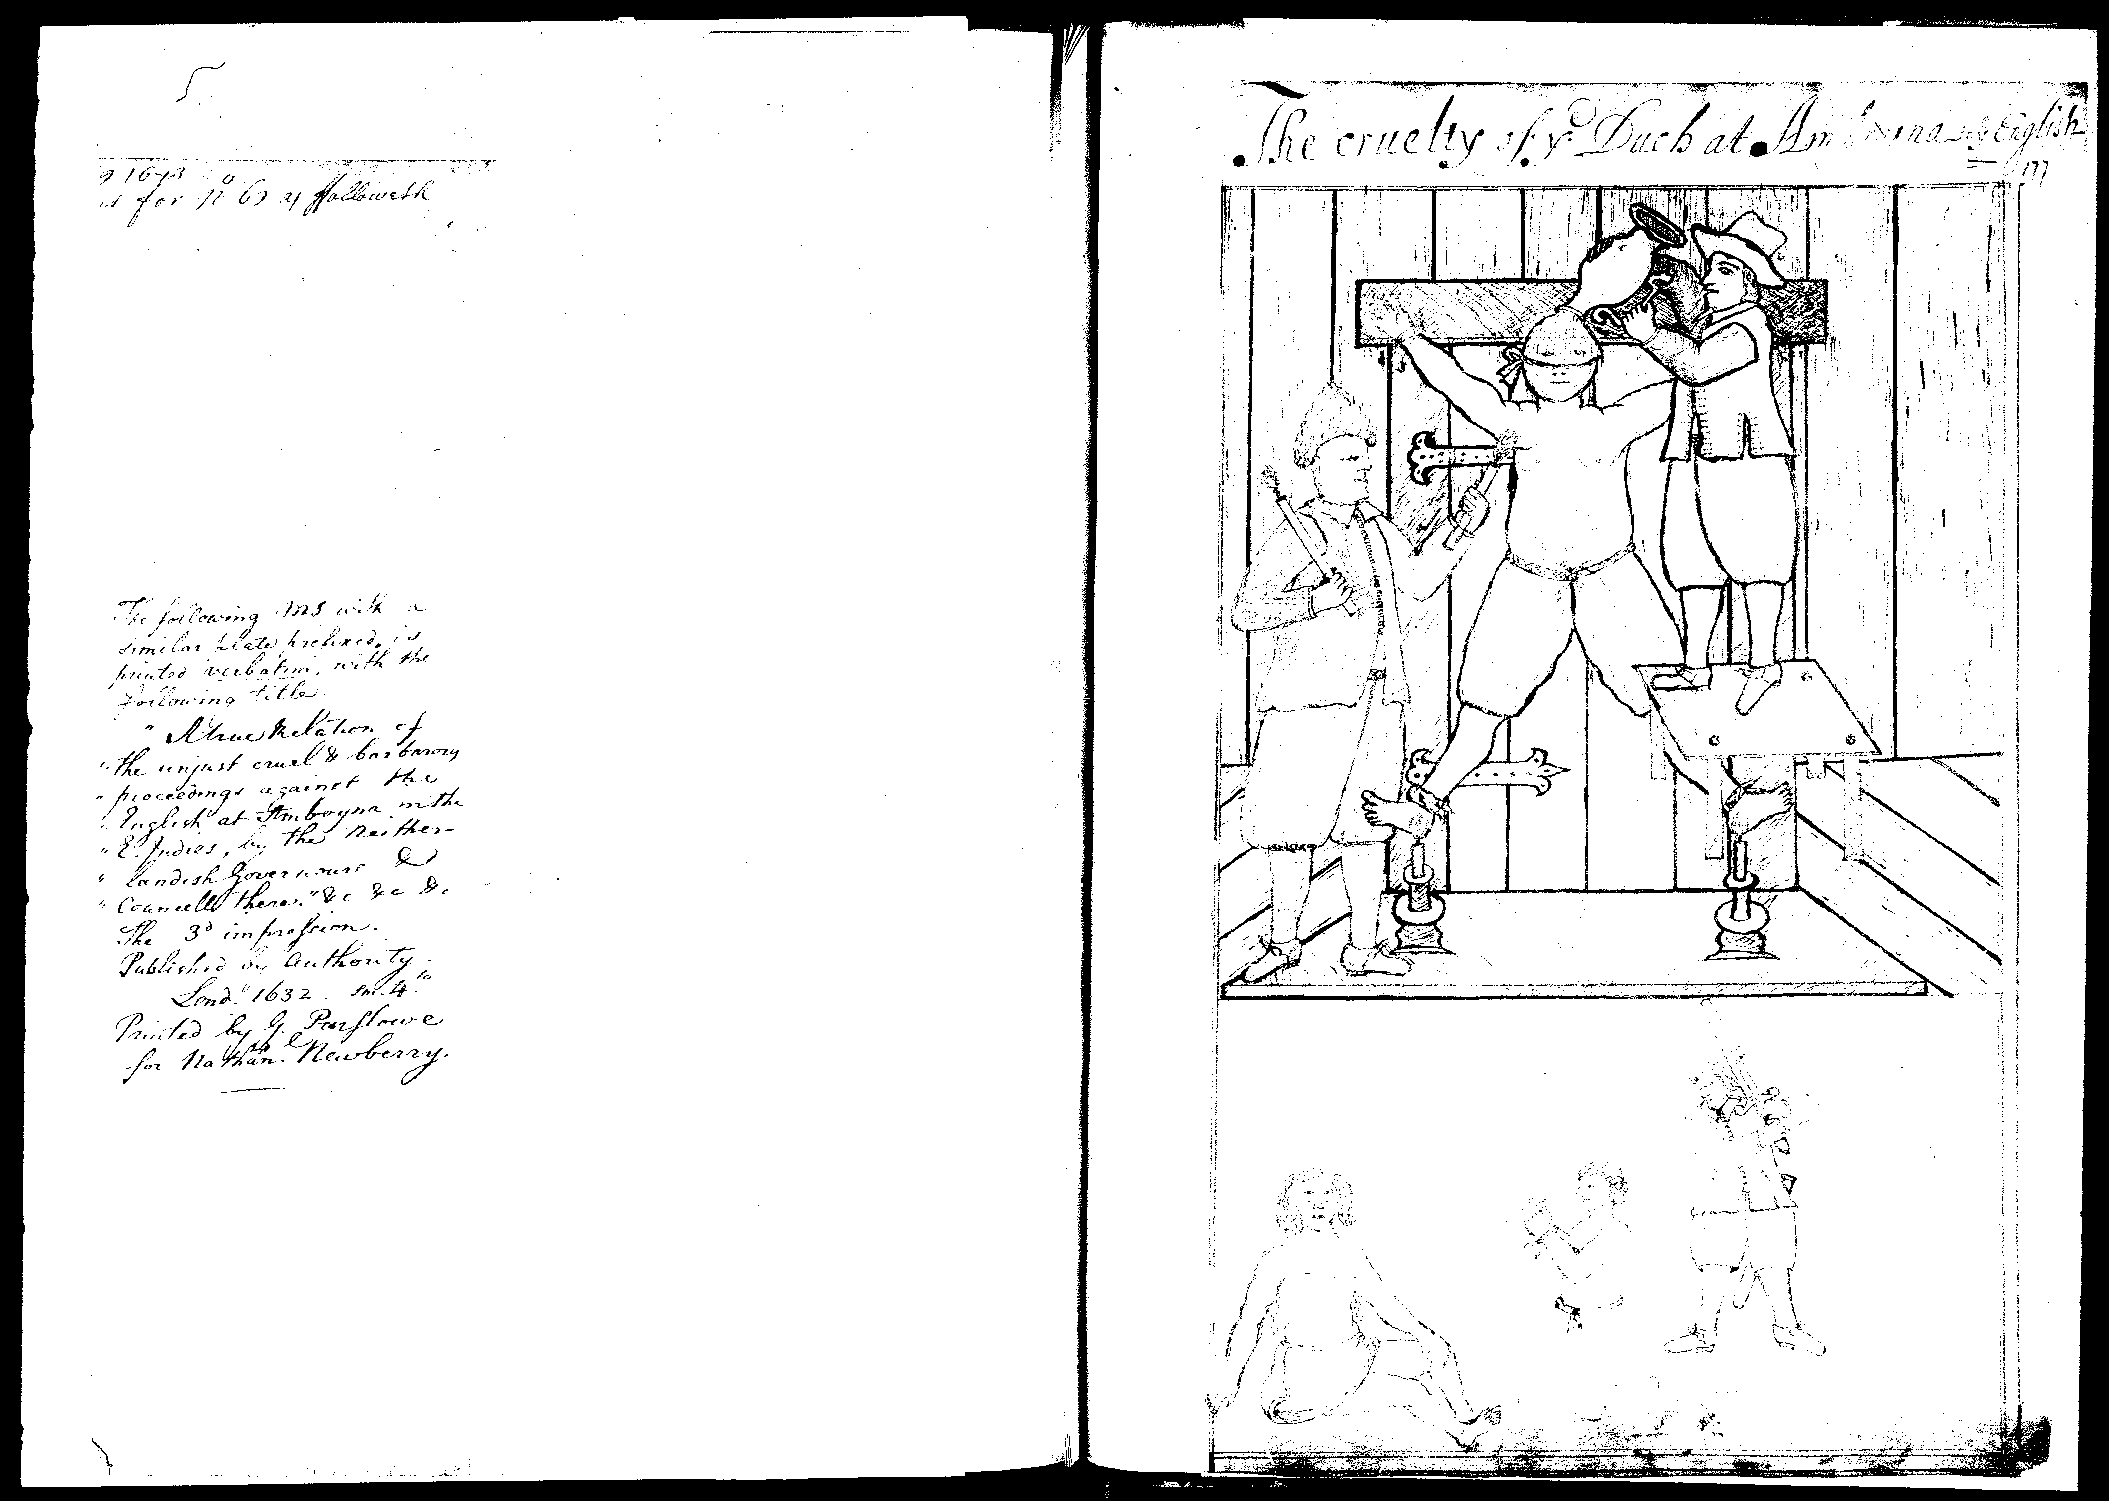 5.
1673
is for No 63 as followeth
The following MS with a
similar plate prefixed, is
printed verbatim, with the
following title.
" A true Relation of
" the unjust cruel & barbarous
" proceedings against the
" English at Amboyna in the
" E. Indies, by the Neither-
" landish Governour &
" Councell there." &c &c &c
The 3d impression.
Published by Authority.
Lond. 1632 sm. 4to
Printed by G. Purslowe
for Nathanl. Newberry.
The cruelty of ye Duch at English